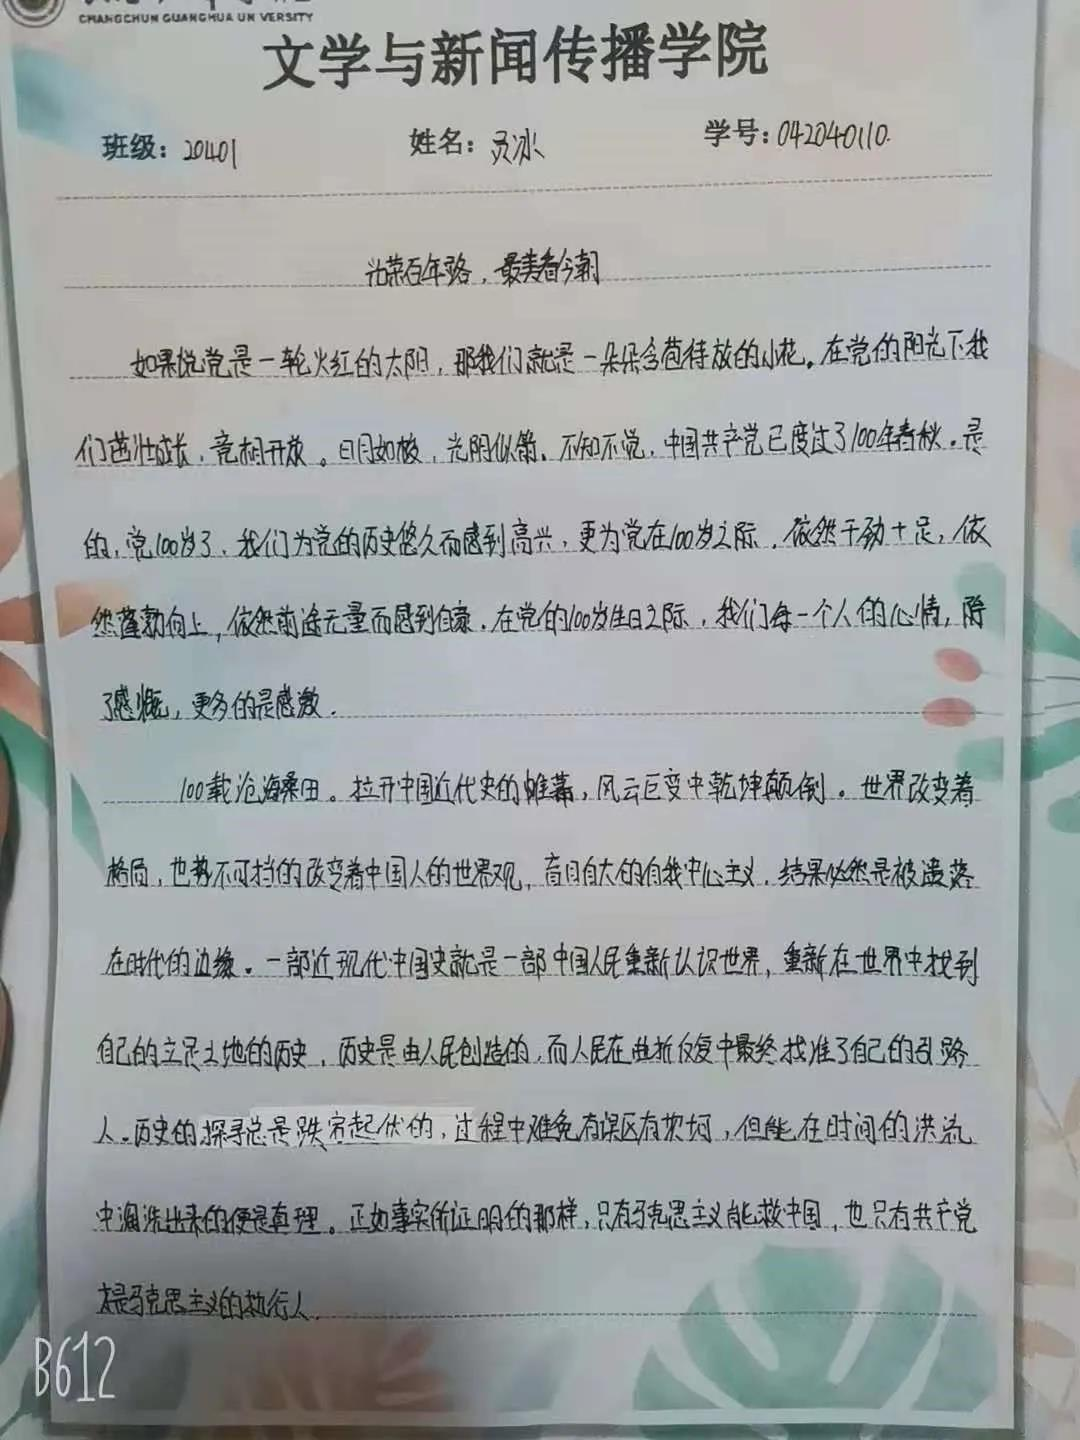 CHANGCHUN GUANGHUA UN VERSITY
文学与新闻传播学院
班级：20401 姓名： 学号：042040110
光荣百年路，最美看今朝
如果说党是一轮火红的太阳，那我们就是一朵朵含苞待放的小花。在党的阳光下我
们茁壮成长，竞相开放。日月如梭，光阴似箭。不知不觉，中国共产党已度过了100年春秋。是
的，党100岁了，我们为党的历史悠久而感到高兴，更为党在100岁之际，依然干劲十足，依
然蓬勃向上，依然前途无量而感到自豪。在党的100岁生日之际，我们每一个人的心情，除
了感慨，更多的是感激。
100载沧海桑田。拉开中国近代史的帷幕，风云巨变中乾坤颠倒。世界改变着
格局，也势不可挡的改变着中国人的世界观，盲目自大的自我中心主义，结果必然是被遗落
在时代的边缘。一部近现代中国史就是一部中国人民重新认识世界，重新在世界中找到
自己的立足土地的历史，历史是由人民创造的，而人民在曲折反复中最终找准了自己的引路
人。历史的探寻总是跌宕起伏的，过程中难免有误区有坎坷，但能在时间的洪流
中漏洗出来的便是真理。正如事实所证明的那样，只有马克思主义能救中国，也只有共产党
才是马克思主义的执行人。
B612